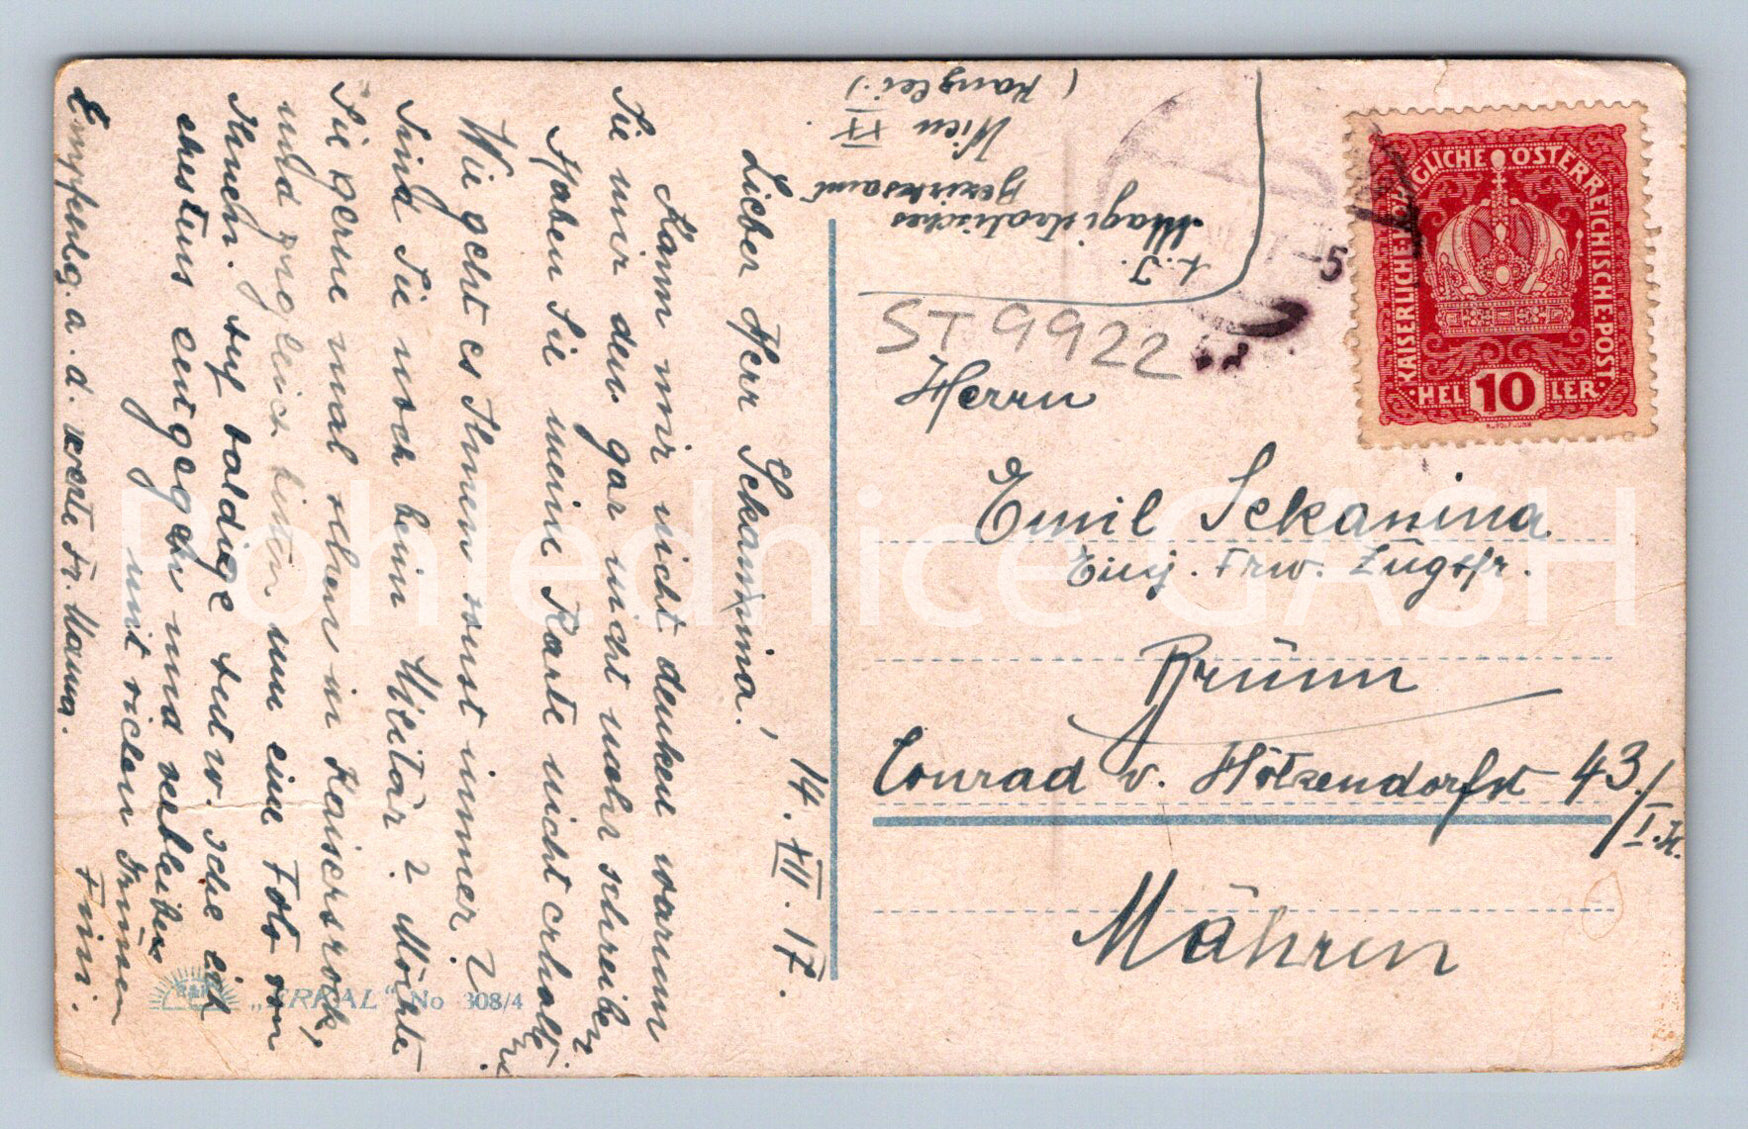 14. XII. 17.
Lieber Herr Sekanina!
Kann mir nicht denken warum
Sie mir den gar nicht mehr schreiben
Haben Sie meine Karte nicht erhalten?
Wie geht es Ihnen sonst immer?
Sind Sie noch beim Militär? Möchte
Sie gerne mal sehen in Kaisersrock,
und zugleich bitten um eine Foto von
Ihnen. Auf baldige Antw. sehe ich
ehestens entgegen und verbleibe
mit vielen Grüßen
Fini.
Empfehlg. a. d. werte Fr. Mama.
k. J.
Magistratisches
Bezirksamt
Wien XX
(Kanzlei.)
ST 9922
Herrn
Emil Sekanina
Einj. Frw. Zugsfr.
Brünn
Conrad v. Hötzendorfst 43./
I. St.
Mähren
KAISERLICHE KÖNIGLICHE ÖSTERREICHISCHE POST
HELLER
10
"ERKAL" No 308/4
Pohlednice GASH